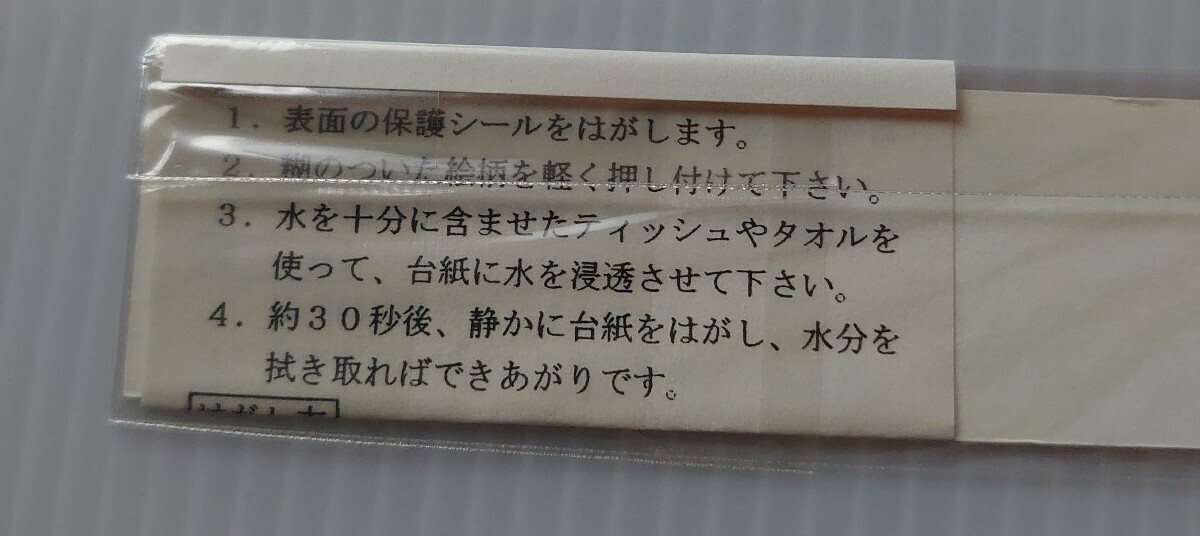 1．表面の保護シールをはがします。
2．糊のついた絵柄を軽く押し付けて下さい。
3．水を十分に含ませたティッシュやタオルを
使って、台紙に水を浸透させて下さい。
4．約30秒後、静かに台紙をはがし、水分を
拭き取ればできあがりです。
はがし方